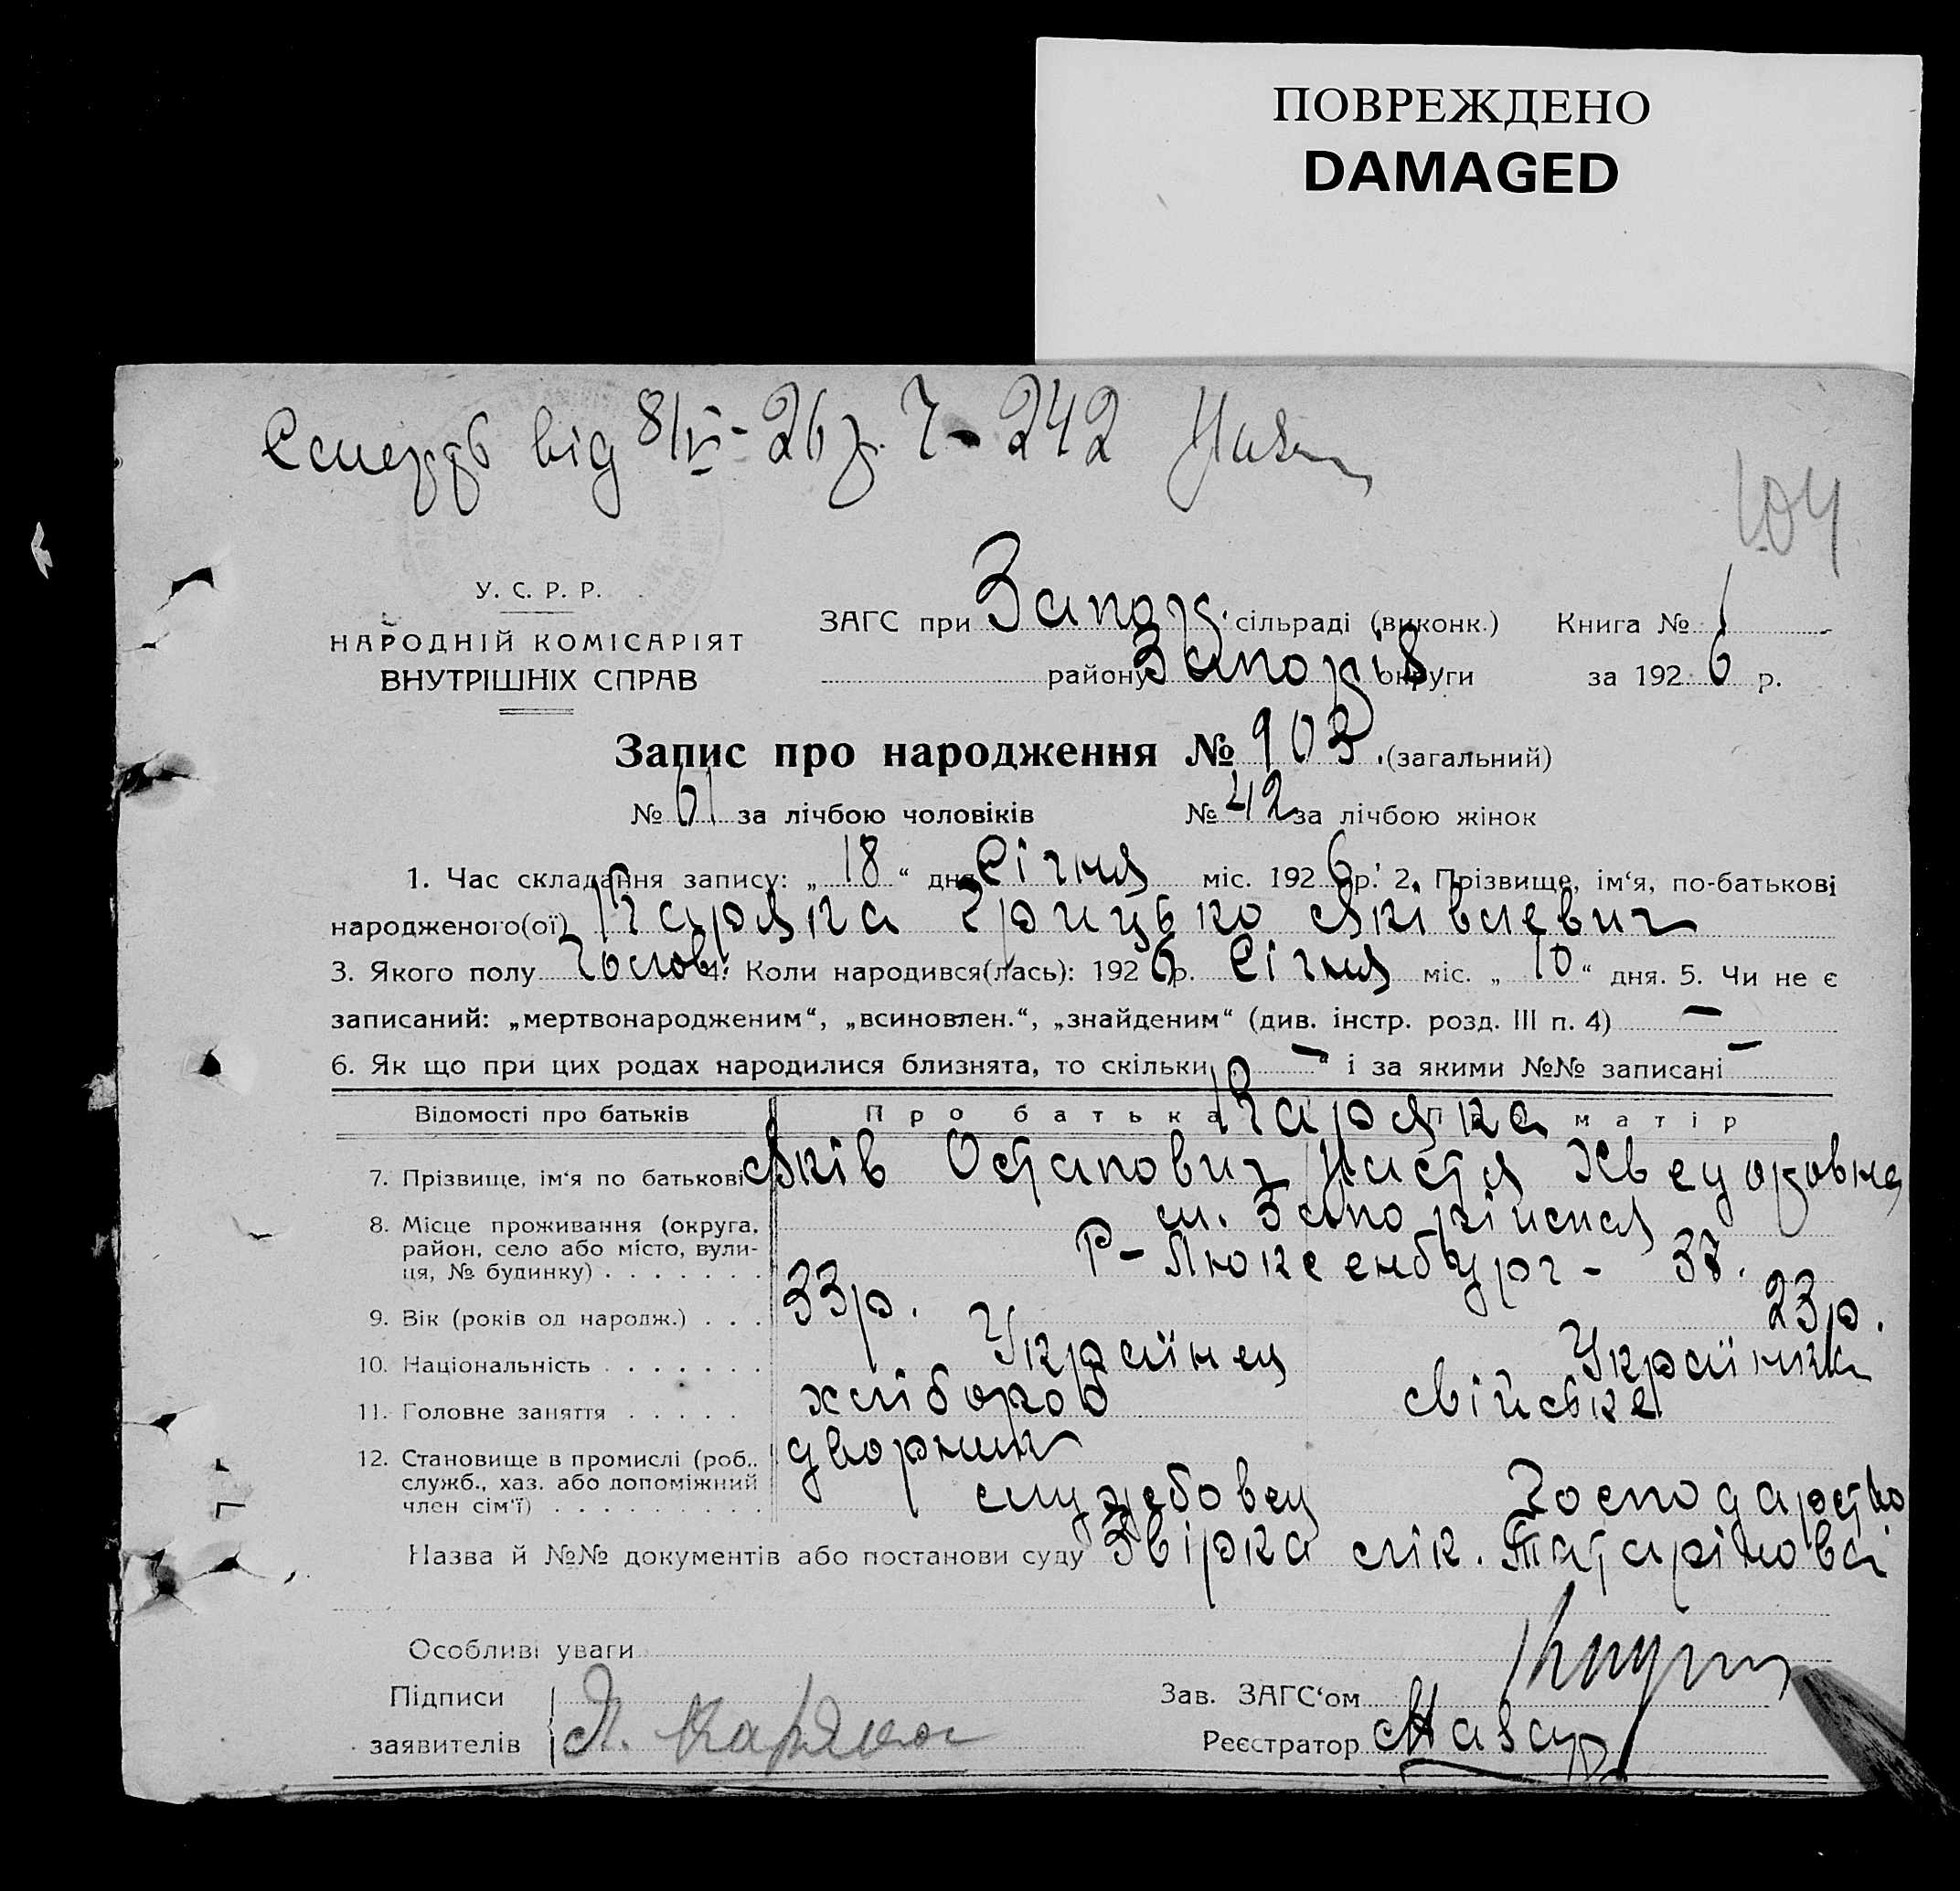 ПОВРЕЖДЕНО
DAMAGED
Смерть від 8/VI-26 р. Ч-242
104
У. С. Р. Р.
НАРОДНІЙ КОМІСАРІЯТ
ВНУТРІШНІХ СПРАВ
ЗАГС при Запор. сільраді (виконк.) Книга № 1
району Запоріз. округи за 1926 р.
Запис про народження № 903 (загальний)
№ 61 за лічбою чоловіків № 42 за лічбою жінок
1. Час складання запису: „18“ дня Січня міс. 1926 р. 2. Прізвище, ім‘я, по-батькові
народженого(ої) Каряка Грицько Яківлевич
3. Якого полу Чолов. 4. Коли народився(лась): 1926 р. Січня міс. „10“ дня. 5. Чи не є
записаний: „мертвонародженим“, „всиновлен.“, „знайденим“ (див. інстр. розд. III п. 4) —
6. Як що при цих родах народилися близнята, то скільки „ — “ і за якими №№ записані —
Відомості про батьків Про батька Каряка Про матір
7. Прізвище, ім‘я по батькові Яків Остапович Настя Хведоровна
8. Місце проживання (округа, район, село або місто, вули-ця, № будинку) м. Запоріжжя
Р-Люксенбург - 37.
9. Вік (років од народж.) 33 р. 23 р.
10. Національність Українец Українка
11. Головне заняття хлібороб свійське
12. Становище в промислі (роб., служб., хаз. або допоміжний член сім‘ї) дворник
службовец Господарство
Назва й №№ документів або постанови суду Звірка лік. Татарінова
Особливі уваги
Підписи
заявителів Я. Каряка
Зав. ЗАГС‘ом
Реєстратор Назар